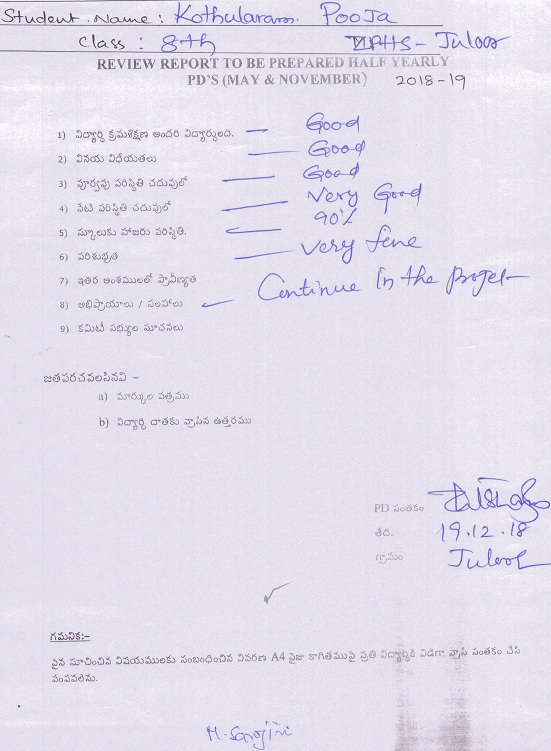 Student Name : Kothularam. Pooja
Class : 8th MPHS - Juloor
REVIEW REPORT TO BE PREPARED HALF YEARLY
PD'S (MAY & NOVEMBER) 2018-19
1) విద్యార్ధి క్రమశిక్షణ అందరి విద్యార్ధులది. — Good
2) వినయ విధేయతలు — Good
3) పూర్వపు పరిస్థితి చదువులో — Good
4) నేటి పరిస్థితి చదువులో — Very Good
5) స్కూలుకు హాజరు పరిస్థితి. — 90%
6) పరిశుభ్రత — Very fine
7) ఇతర అంశములలో ప్రావీణ్యత
8) అభిప్రాయాలు / సలహాలు — Continue In the
9) కమిటీ సభ్యుల సూచనలు
జతపరచవలసినవి –
a) మార్కుల పత్రము
b) విద్యార్ధి దాతకు వ్రాసిన ఉత్తరము
PD సంతకం
తేది. 19.12.18
గ్రామం Juloor
గమనిక:-
పైన సూచించిన విషయములకు సంబంధించిన వివరణ A4 సైజు కాగితముపై ప్రతి విద్యార్ధికి విడిగా వ్రాసి సంతకం చేసి
పంపవలెను.
M. Sarojini